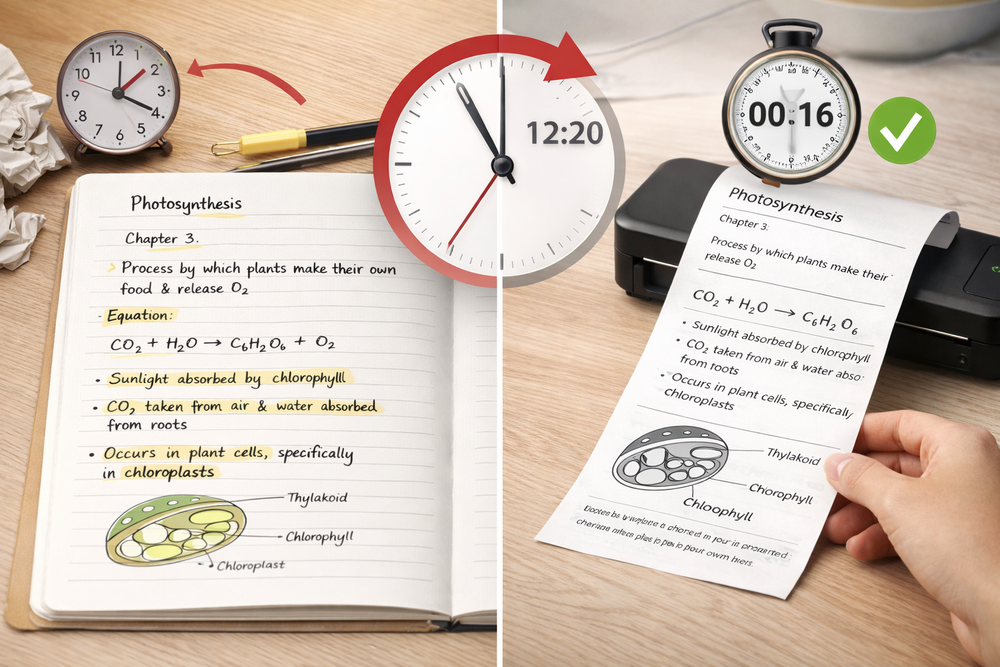 11 12 1
10 2
9 3
8 4
7 6 5
12:20
00:16
Photosynthesis
Chapter 3.
Process by which plants make their own
food & release O₂
- Equation:
CO₂ + H₂O → C₆H₂O₆ + O₂
• Sunlight absorbed by chlorophylll
• CO₂ taken from air & water absorbed
from roots
• Occurs in plant cells, specifically
in chloroplasts
Thylakoid
Chlorophyll
Chloroplast
Photosynthesis
Chapter 3:
Process by which plants make their
release O₂
CO₂ + H₂O → C₆H₂ O₆
• Sunlight absorbed by chlorophyll
• CO₂ taken from air & water abso
from roots
• Occurs in plant cells, specifically
chloroplasts
Thylakoid
Chorophyll
Chloophyll